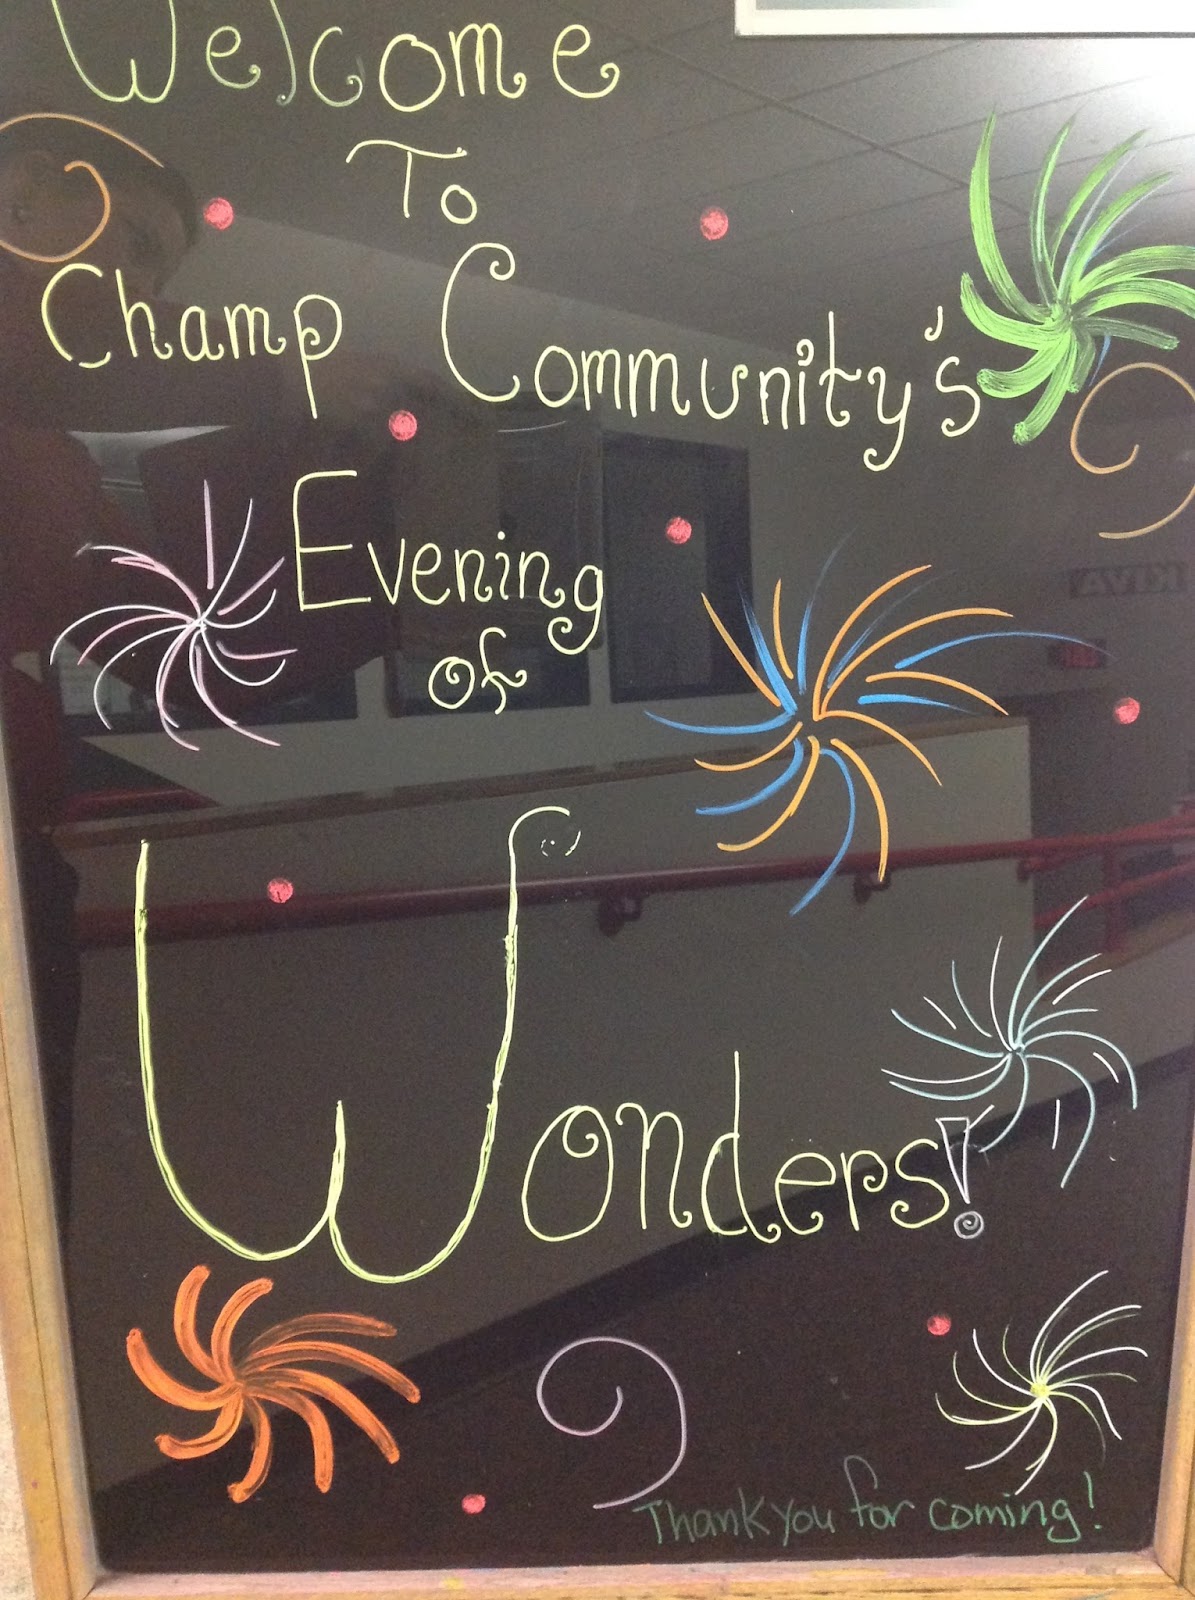 Welcome
To
Champ Community's
Evening
of
Wonders!
Thank you for coming!
KIVA